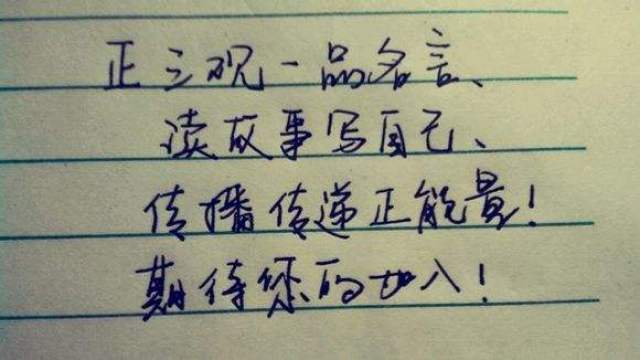 正三观一品名言、
读故事写自己、
传播传递正能量!
期待您的加入!